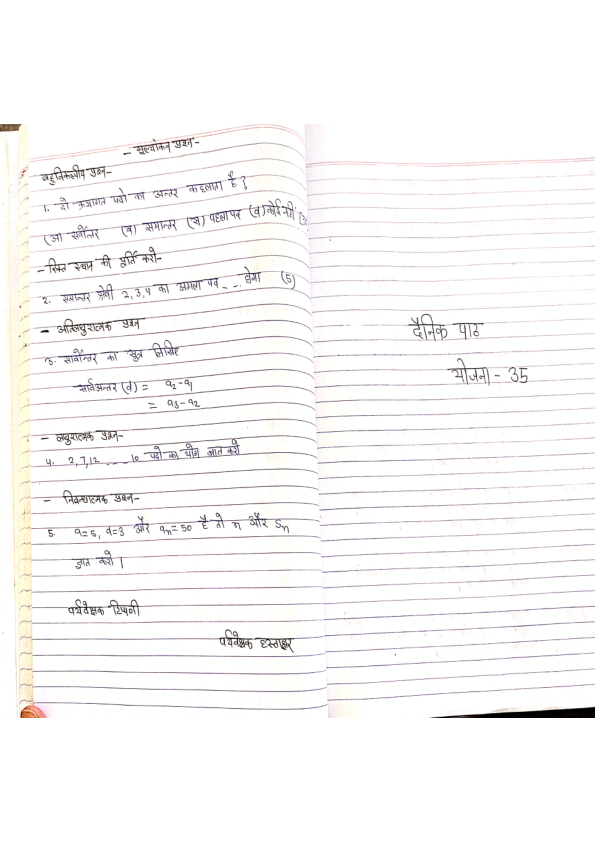 - मूल्यांकन प्रश्न -
बहुविकल्पीय प्रश्न -
1. दो क्रमागत पदो का अन्तर कहलाता है ?
(अ) सर्वान्तर (ब) समान्तर (स) पहला पद (द) कोई नहीं
- रिक्त स्थान की पूर्ति करो -
2. समान्तर श्रेणी 2, 3, 4 का अगला पद - - होगा (5)
- अतिलघुरात्मक प्रश्न
3. सार्वान्तर का सूत्र लिखिए
सार्वअन्तर (d) = a2 - a1
= a3 - a2
- लघुरात्मक प्रश्न -
4. 2, 7, 12 ---- 10 पदो का योग ज्ञात करो
- निबन्धात्मक प्रश्न -
5. a=5, d=3 और an=50 है तो n और Sn
ज्ञात करो |
पर्यवेक्षक टिप्पणी
पर्यवेक्षक हस्ताक्षर
दैनिक पाठ
योजना - 35